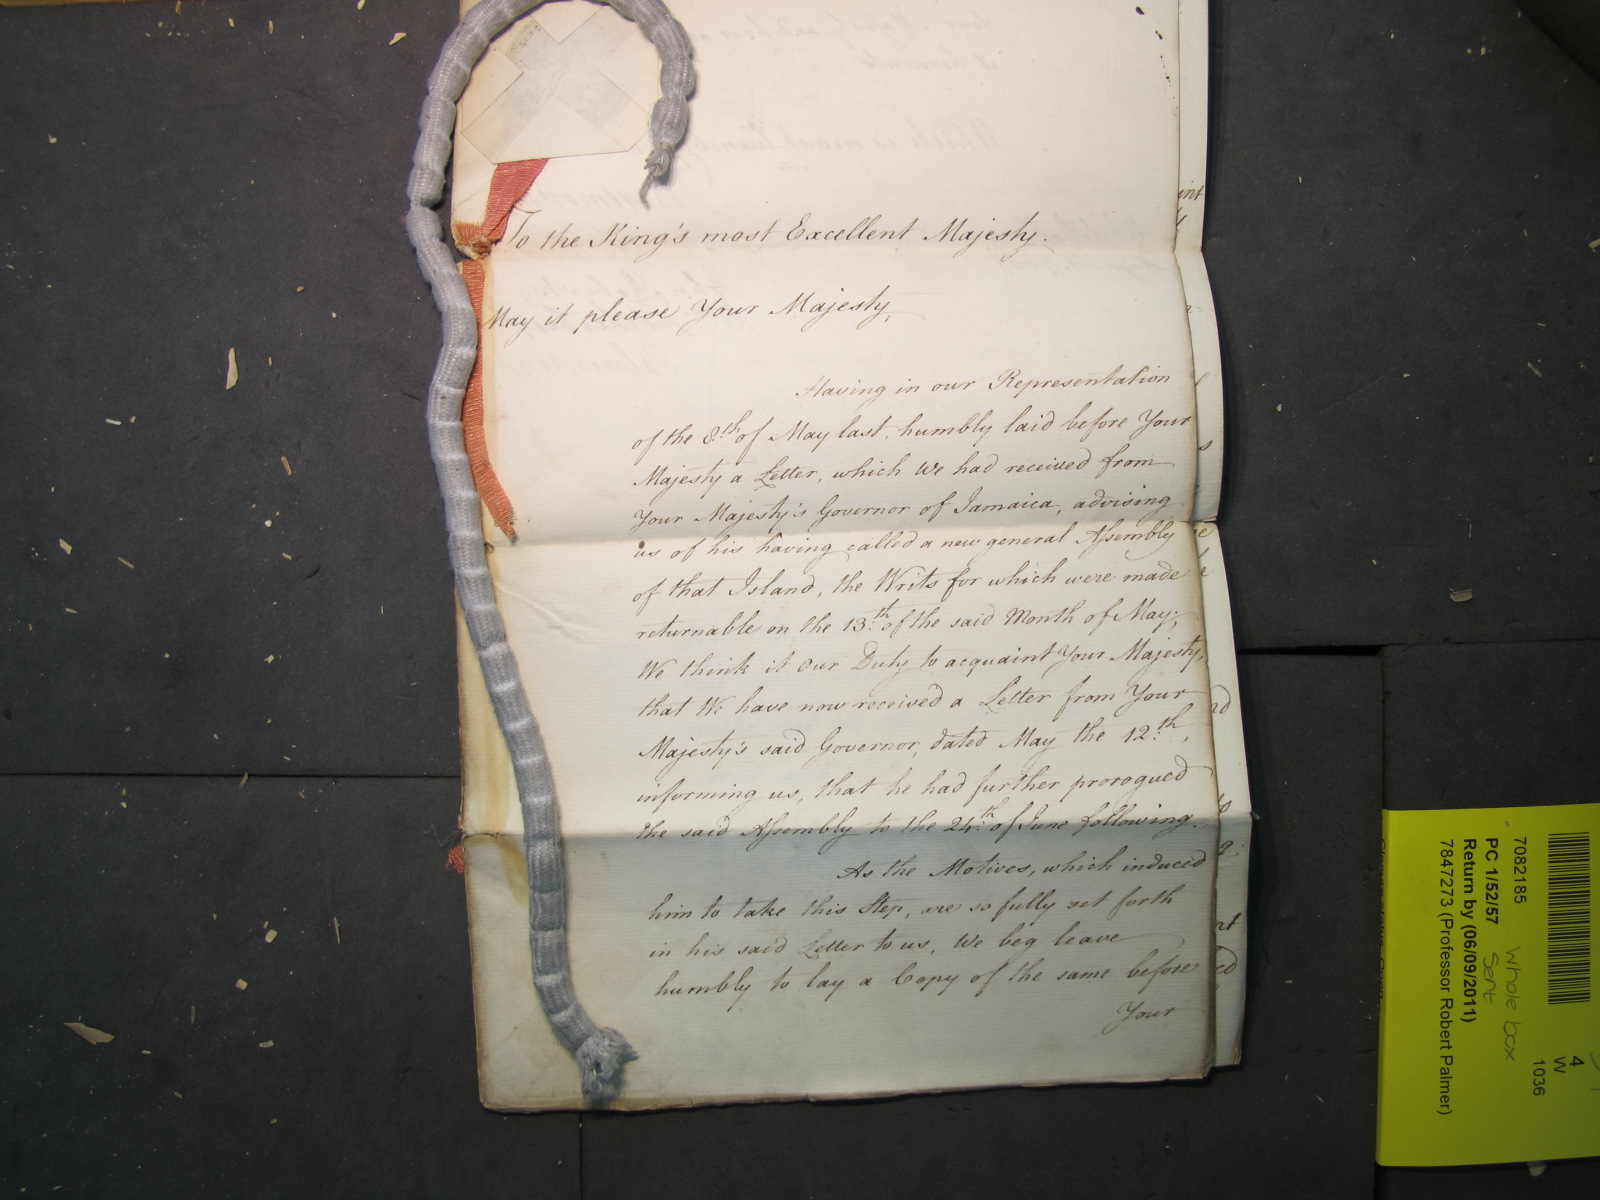 To the King's most Excellent Majesty.
May it please Your Majesty,
Having in our Representation
of the 8.th of May last, humbly laid before Your
Majesty a Letter, which We had received from
Your Majesty's Governor of Jamaica, advising
us of his having called a new general Assembly
of that Island, the Writs for which were made
returnable on the 13.th of the said Month of May;
We think it Our Duty to acquaint Your Majesty,
that We have now received a Letter from Your
Majesty's said Governor, dated May the 12.th,
informing us, that he had further prorogued
the said Assembly to the 24.th of June following.
As the Motives, which induced
him to take this Step, are so fully set forth
in his said Letter to us, We beg leave
humbly to lay a Copy of the same before
Your
7082185
PC 1/52/57
Return by (06/09/2011)
7847273 (Professor Robert Palmer)
Whole box
Sent
4
W
1036